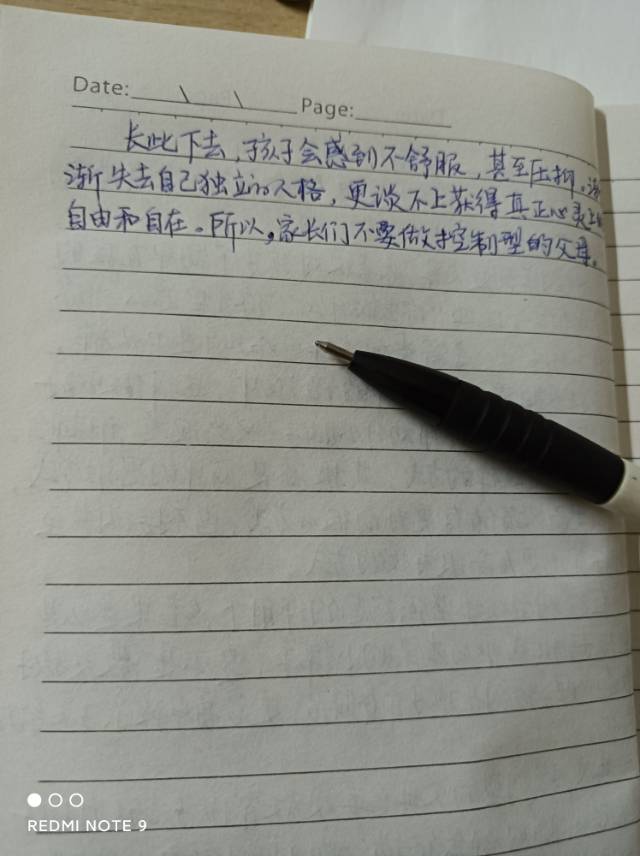 Date: Page:
长此下去，孩子会感到不舒服，甚至压抑，逐
渐失去自己独立的人格，更谈不上获得真正心灵上的
自由和自在。所以，家长们不要做控制型的父母。
REDMI NOTE 9